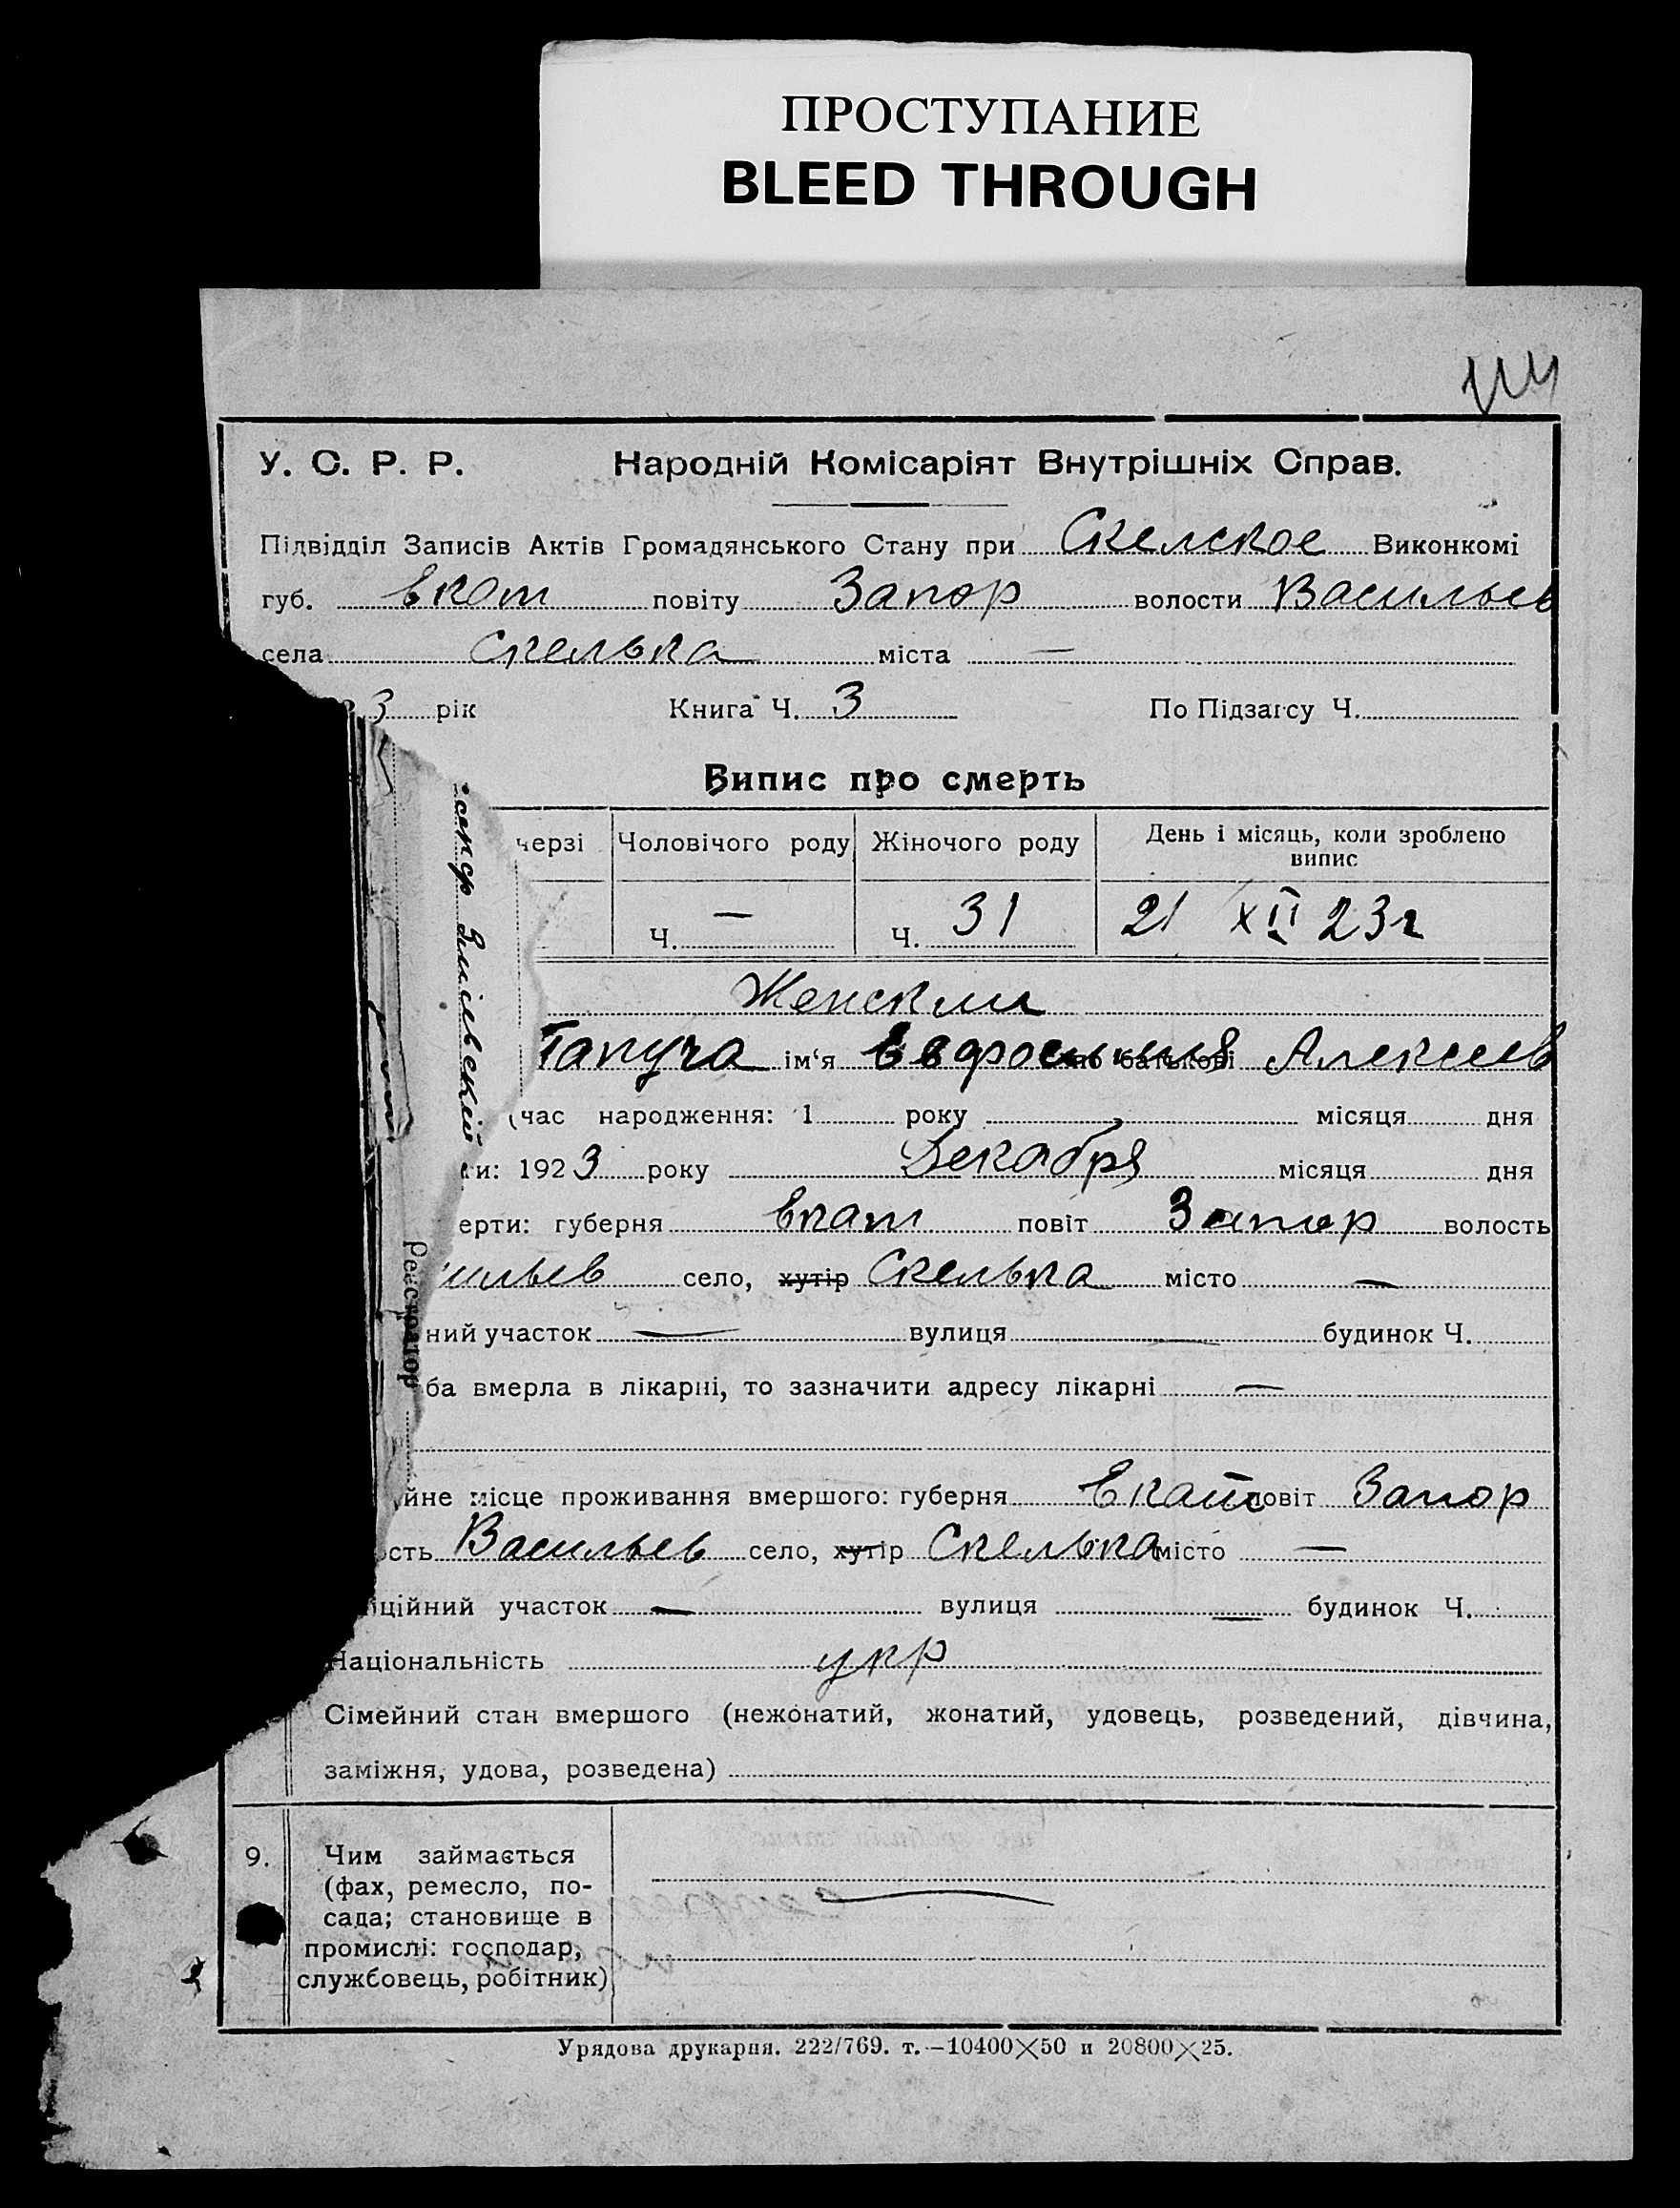 ПРОСТУПАНИЕ
BLEED THROUGH
У. С. Р. Р. Народній Комісаріят Внутрішніх Справ.
Підвідділ Записів Актів Громадянського Стану при Скелское Виконкомі
губ. Екат повіту Запор волости Васильев
села Скелька міста —
3 рік Книга Ч. 3 По Підзагсу Ч.
Випис про смерть
черзі Чоловічого роду Жіночого роду День і місяць, коли зроблено
випис
Ч. — Ч. 31 21 XII 23г
Женский
ім‘я Евфросиния по батькові Алексеев
час народження: 1 року місяця дня
ти: 1923 року Декабря місяця дня
ерти: губерня Екат повіт Запор волость
ильев село, хутір Скелька місто —
ний участок — вулиця — будинок Ч.
ба вмерла в лікарні, то зазначити адресу лікарні —
йне місце проживання вмершого: губерня Екат повіт Запор
ость Васильев село, хутір Скелька місто —
ційний участок — вулиця — будинок Ч.
Національність укр
Сімейний стан вмершого (нежонатий, жонатий, удовець, розведений, дівчина,
заміжня, удова, розведена)
9. Чим займається
(фах, ремесло, по-
сада; становище в
промислі: господар,
службовець, робітник)
—
Урядова друкарня. 222/769. т.—10400×50 и 20800×25.
Реєстратор